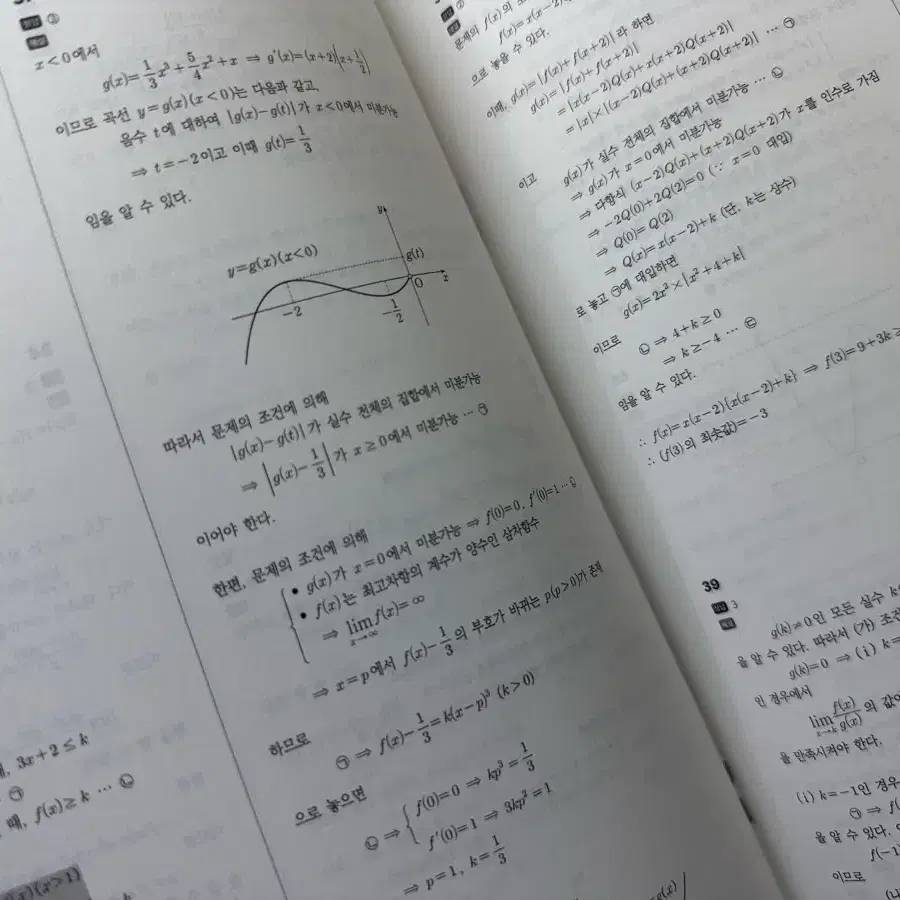 정답 ②
해설
x<0에서
g(x)=1/3x³+5/4x²+x ⇒ g'(x)=(x+2)(x+1/2)
이므로 곡선 y=g(x)(x<0)는 다음과 같고,
음수 t에 대하여 |g(x)-g(t)|가 x<0에서 미분가능
⇒ t=-2이고 이때 g(t)=1/3
임을 알 수 있다.
y
y=g(x)(x<0)
g(t)
O
x
-2
-1/2
따라서 문제의 조건에 의해
|g(x)-g(t)|가 실수 전체의 집합에서 미분가능
⇒ |g(x)-1/3|가 x≥0에서 미분가능 … ㉠
이어야 한다.
한편, 문제의 조건에 의해
• g(x)가 x=0에서 미분가능 ⇒ f(0)=0, f'(0)=1 … ㉡
• f(x)는 최고차항의 계수가 양수인 삼차함수
⇒ lim x→∞ f(x)=∞
⇒ x=p에서 f(x)-1/3의 부호가 바뀌는 p(p>0)가 존재
하므로
㉠ ⇒ f(x)-1/3=k(x-p)³ (k>0)
으로 놓으면
㉡ ⇒ f(0)=0 ⇒ kp³=1/3
f'(0)=1 ⇒ 3kp²=1
⇒ p=1, k=1/3
3x+2≤k
㉠
때, f(x)≥k … ㉡
(x)(x>1)
문제의 f(x)의 조
f(x)=x(x-2)Q
으로 놓을 수 있다.
이때, g(x)=|f(x)+f(x+2)|라 하면
g(x)=|f(x)+f(x+2)|
=|x(x-2)Q(x)+x(x+2)Q(x+2)|
=|x|×|(x-2)Q(x)+(x+2)Q(x+2)| … ㉠
이고
g(x)가 실수 전체의 집합에서 미분가능 … ㉡
⇒ g(x)가 x=0에서 미분가능
⇒ 다항식 (x-2)Q(x)+(x+2)Q(x+2)가 x를 인수로 가짐
⇒ -2Q(0)+2Q(2)=0 (∵ x=0 대입)
⇒ Q(0)=Q(2)
⇒ Q(x)=x(x-2)+k (단, k는 상수)
로 놓고 ㉠에 대입하면
g(x)=2x²×|x²+4+k|
이므로
㉡ ⇒ 4+k≥0
⇒ k≥-4 … ㉢
임을 알 수 있다.
∴ f(x)=x(x-2){x(x-2)+k} ⇒ f(3)=9+3k≥
∴ (f(3)의 최솟값)=-3
39
정답 3
해설
g(k)≠0인 모든 실수 k
을 알 수 있다. 따라서 (가) 조건
g(k)=0 ⇒ (i) k=
인 경우에서
lim x→k f(x)/g(x)의 값이
을 만족시켜야 한다.
(i) k=-1인 경우
㉠ ⇒ f(
을 알 수 있다.
f(-1)
이므로
(나